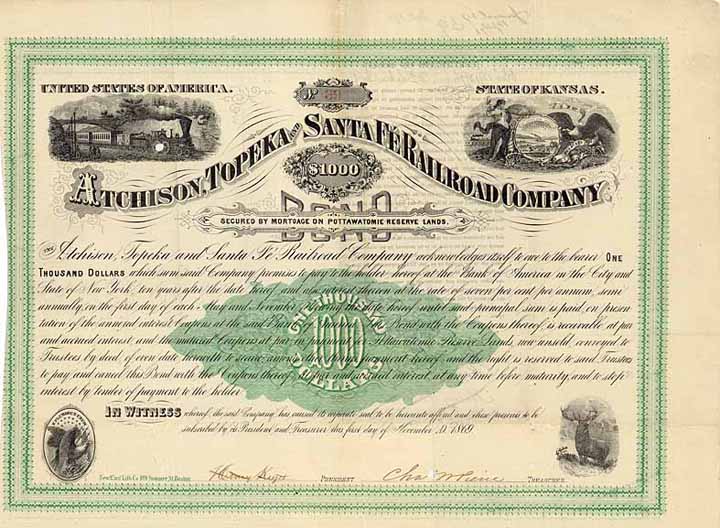 UNITED STATES OF AMERICA.
STATE OF KANSAS.
ATCHISON, TOPEKA AND SANTA FÉ RAILROAD COMPANY
$1000
BOND
SECURED BY MORTGAGE ON POTTAWATOMIE RESERVE LANDS.
THE Atchison, Topeka and Santa Fe Railroad Company acknowledges itself to owe to the bearer ONE
THOUSAND DOLLARS which sum said Company promises to pay to the holder hereof at the Bank of America in the City and
State of New York, ten years after the date hereof and also interest thereon at the rate of seven per cent per annum, semi
annually, on the first day of each May and November until said principal sum is paid, on presen
tation of the annexed interest Coupons at the said Bank. Bond with the Coupons thereof is receivable at par
and accrued interest, and the matured Coupons at par in payment Pottawatomie Reserve Lands, now unsold, conveyed to
Trustees by deed of even date herewith to secure hereof, and the right is reserved to said Trustees
to pay and cancel this Bond with the Coupons thereof at par and accrued interest at any time before maturity, and to stop
interest by tender of payment to the holder
ONE THOUSAND
1000
DOLLARS
IN WITNESS whereof, the said Company has caused its corporate seal to be hereunto affixed and these presents to be
subscribed by its President and Treasurer this first day of November A.D. 1869
PRESIDENT
Chas W Pierce TREASURER